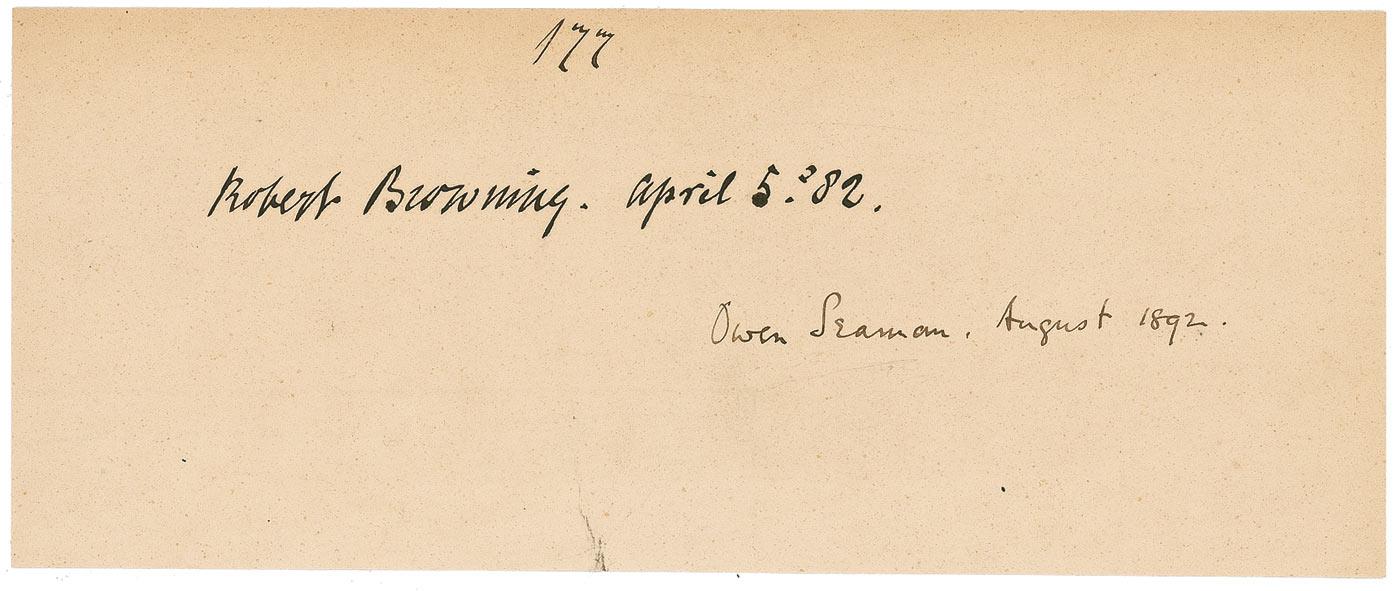 177
Robert Browning. April 5. '82.
Owen Seaman. August 1892.